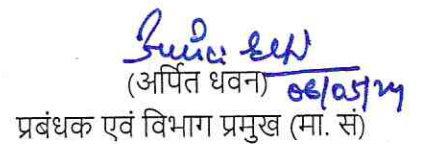 (अर्पित धवन) 06/05/24
प्रबंधक एवं विभाग प्रमुख (मा. सं)